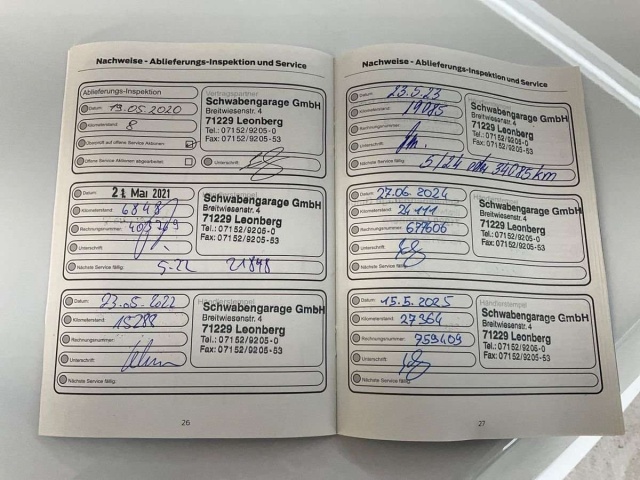 Nachweise - Ablieferungs-Inspektion und Service
Ablieferungs-Inspektion
Datum: 19.05.2020
Kilometerstand: 8
Überprüft auf offene Service Aktionen
Offene Service Aktionen abgearbeitet:
Vertragspartner
Schwabengarage GmbH
Breitwiesenstr. 4
71229 Leonberg
Tel.: 07152/9205-0
Fax: 07152/9205-53
Unterschrift:
Datum: 21. Mai 2021
Kilometerstand: 6848
Rechnungsnummer:
Unterschrift:
Nächste Service fällig: 5-22 21848
Schwabengarage GmbH
Breitwiesenstr. 4
71229 Leonberg
Tel.: 07152/9205-0
Fax: 07152/9205-53
Datum: 23.05.2022
Kilometerstand: 15288
Rechnungsnummer:
Unterschrift:
Nächste Service fällig:
Händlerstempel
Schwabengarage GmbH
Breitwiesenstr. 4
71229 Leonberg
Tel.: 07152/9205-0
Fax: 07152/9205-53
26
Nachweise - Ablieferungs-Inspektion und Service
Datum: 23.5.23
Kilometerstand: 19085
Rechnungsnummer:
Unterschrift:
Nächste Service fällig: 5/24 oder 34085 km
Schwabengarage GmbH
Breitwiesenstr. 4
71229 Leonberg
Tel.: 07152/9205-0
Fax: 07152/9205-53
Datum: 27.06.2024
Kilometerstand: 24111
Rechnungsnummer: 677606
Unterschrift:
Nächste Service fällig:
Schwabengarage GmbH
Breitwiesenstr. 4
71229 Leonberg
Tel.: 07152/9205-0
Fax: 07152/9205-53
Datum: 15.5.2025
Kilometerstand: 27364
Rechnungsnummer: 759409
Unterschrift:
Nächste Service fällig:
Händlerstempel
Schwabengarage GmbH
Breitwiesenstr. 4
71229 Leonberg
Tel.: 07152/9205-0
Fax: 07152/9205-53
27